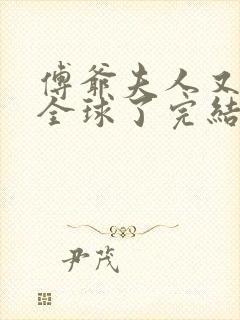 傅爺夫人又
全球了完結
尹茂